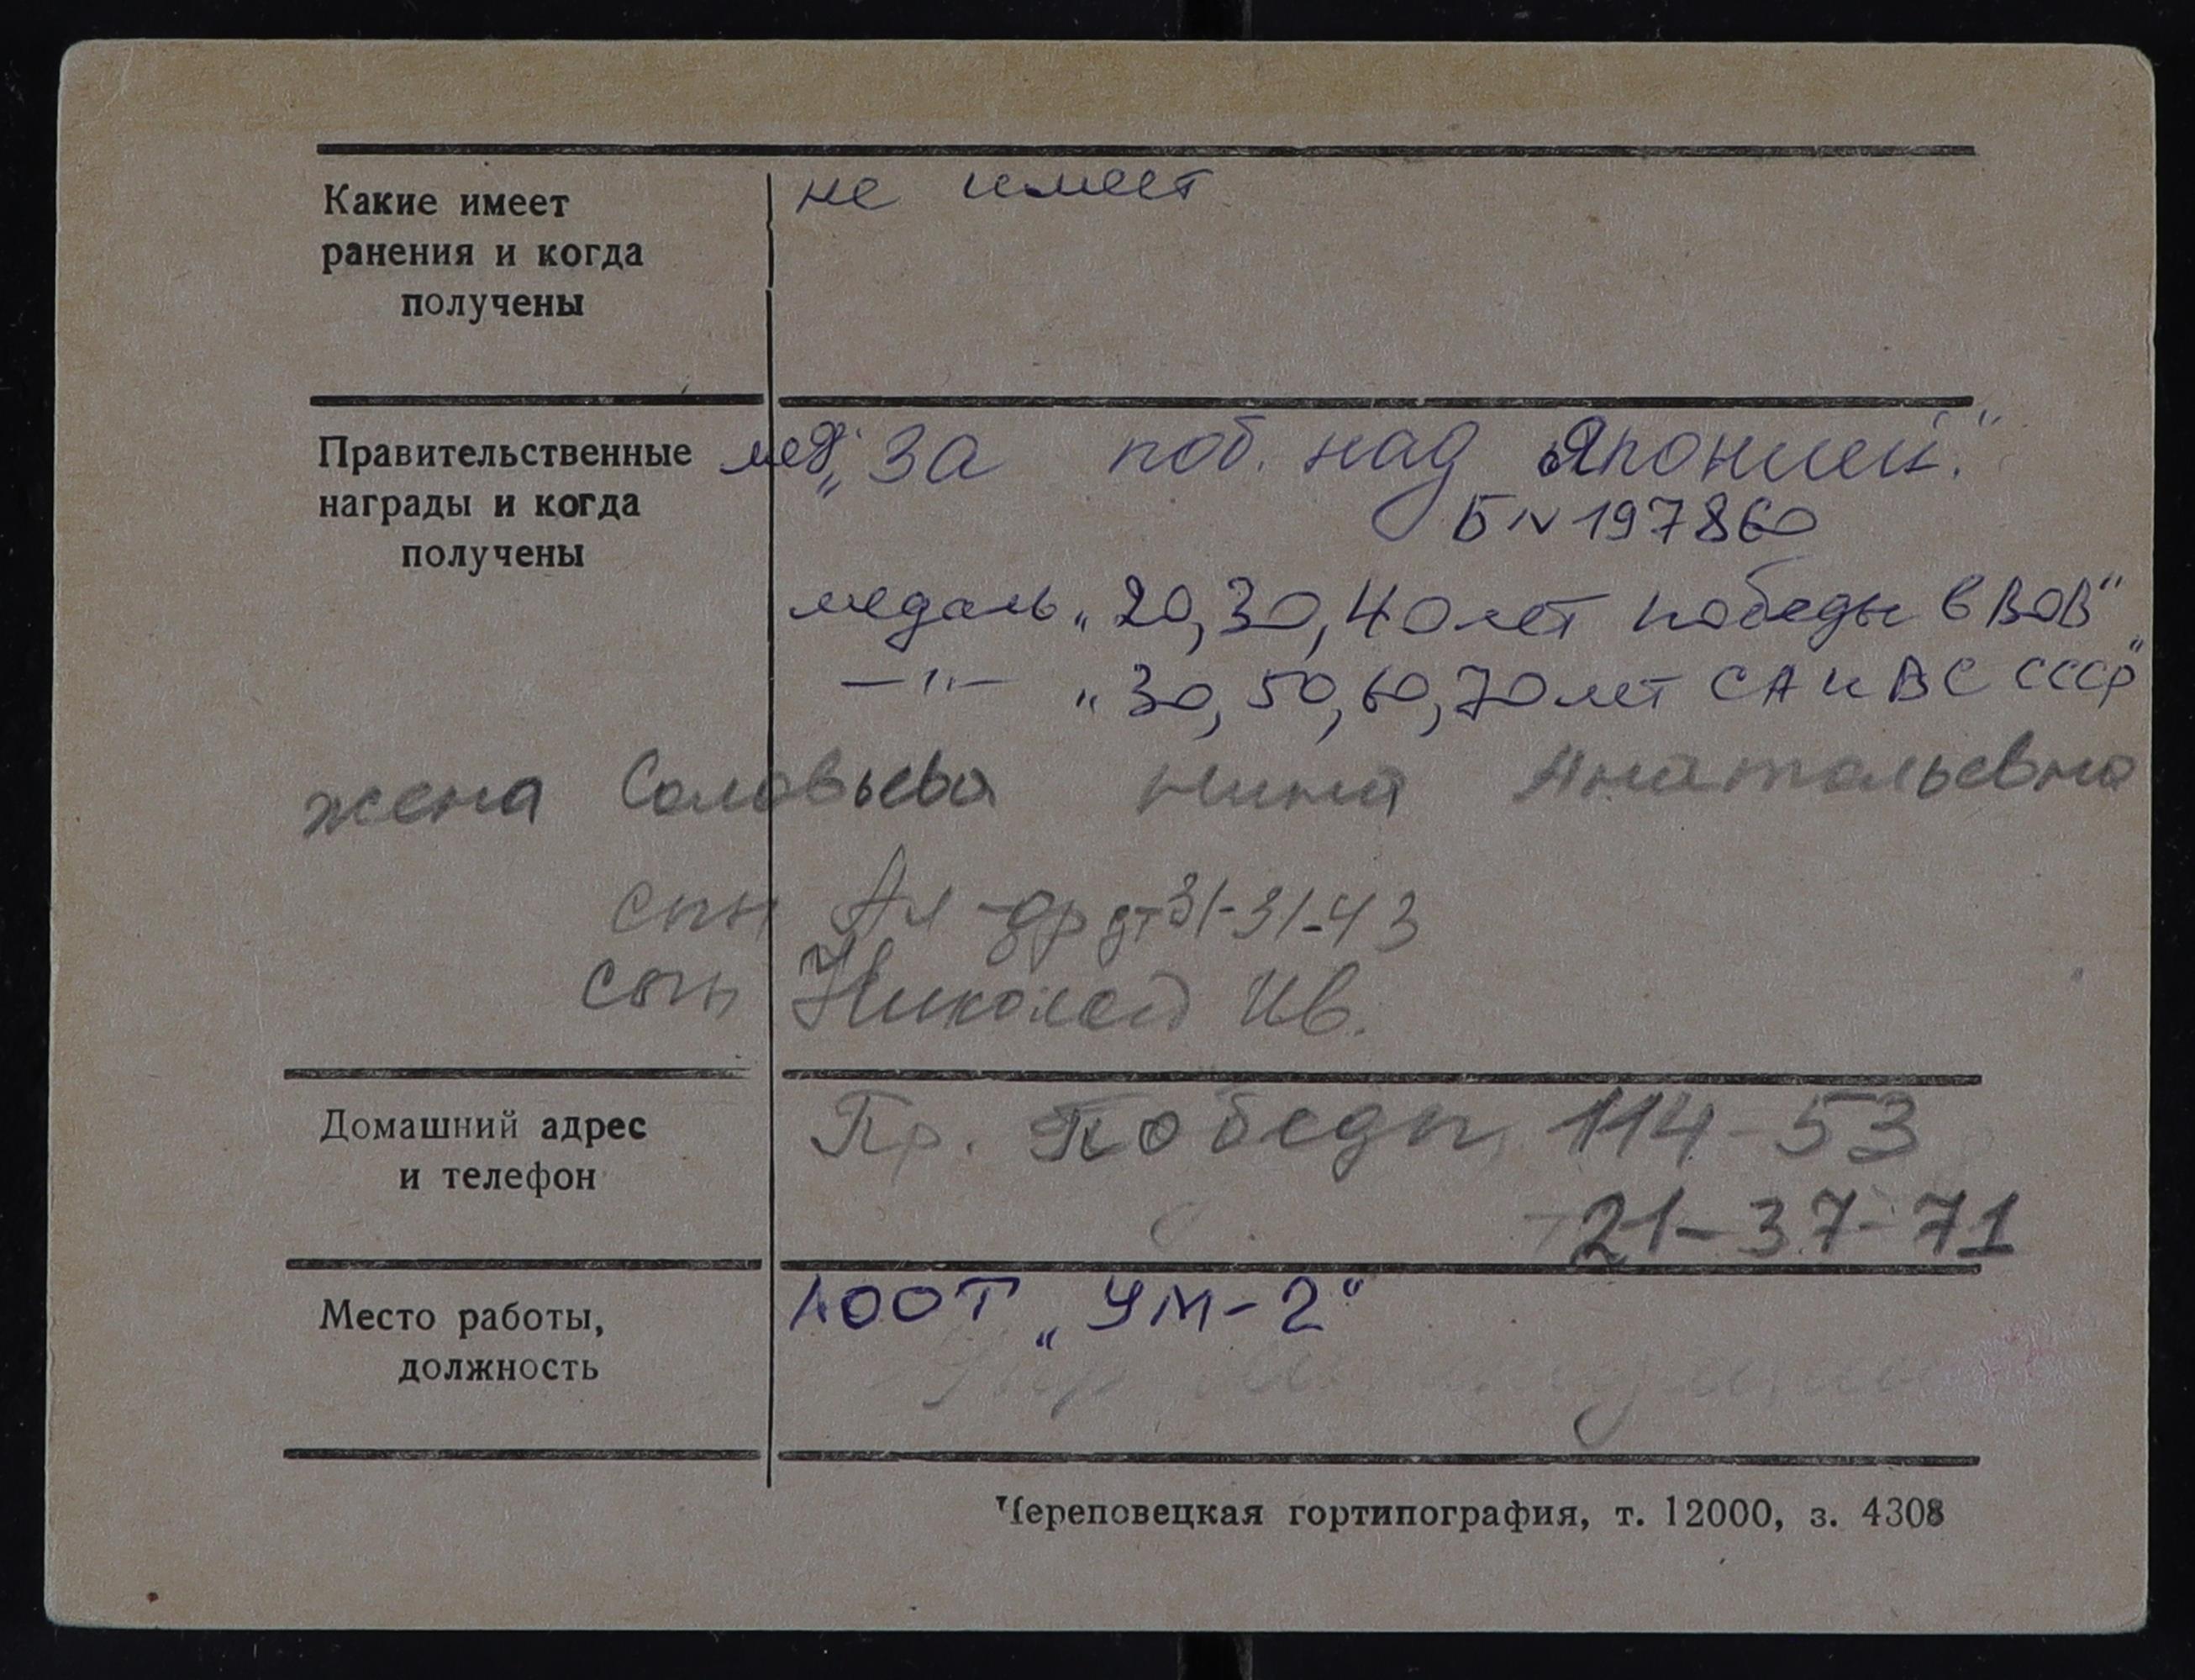 Какие имеет не имеет
ранения и когда
получены
Правительственные мед. „За поб. над Японией."
награды и когда Б N 197860
получены
медаль „20, 30, 40 лет победы в ВОВ"
—"— „30, 50, 60, 70 лет СА и ВС СССР"
жена Соловьева Нина Анатольевна
сын Ал-др дт 31-31-43
сын Николай Ив.
Домашний адрес Пр. Победы, 114-53
и телефон т 21-37-71
Место работы, АООТ „УМ-2"
должность
Череповецкая гортипография, т. 12000, з. 4308